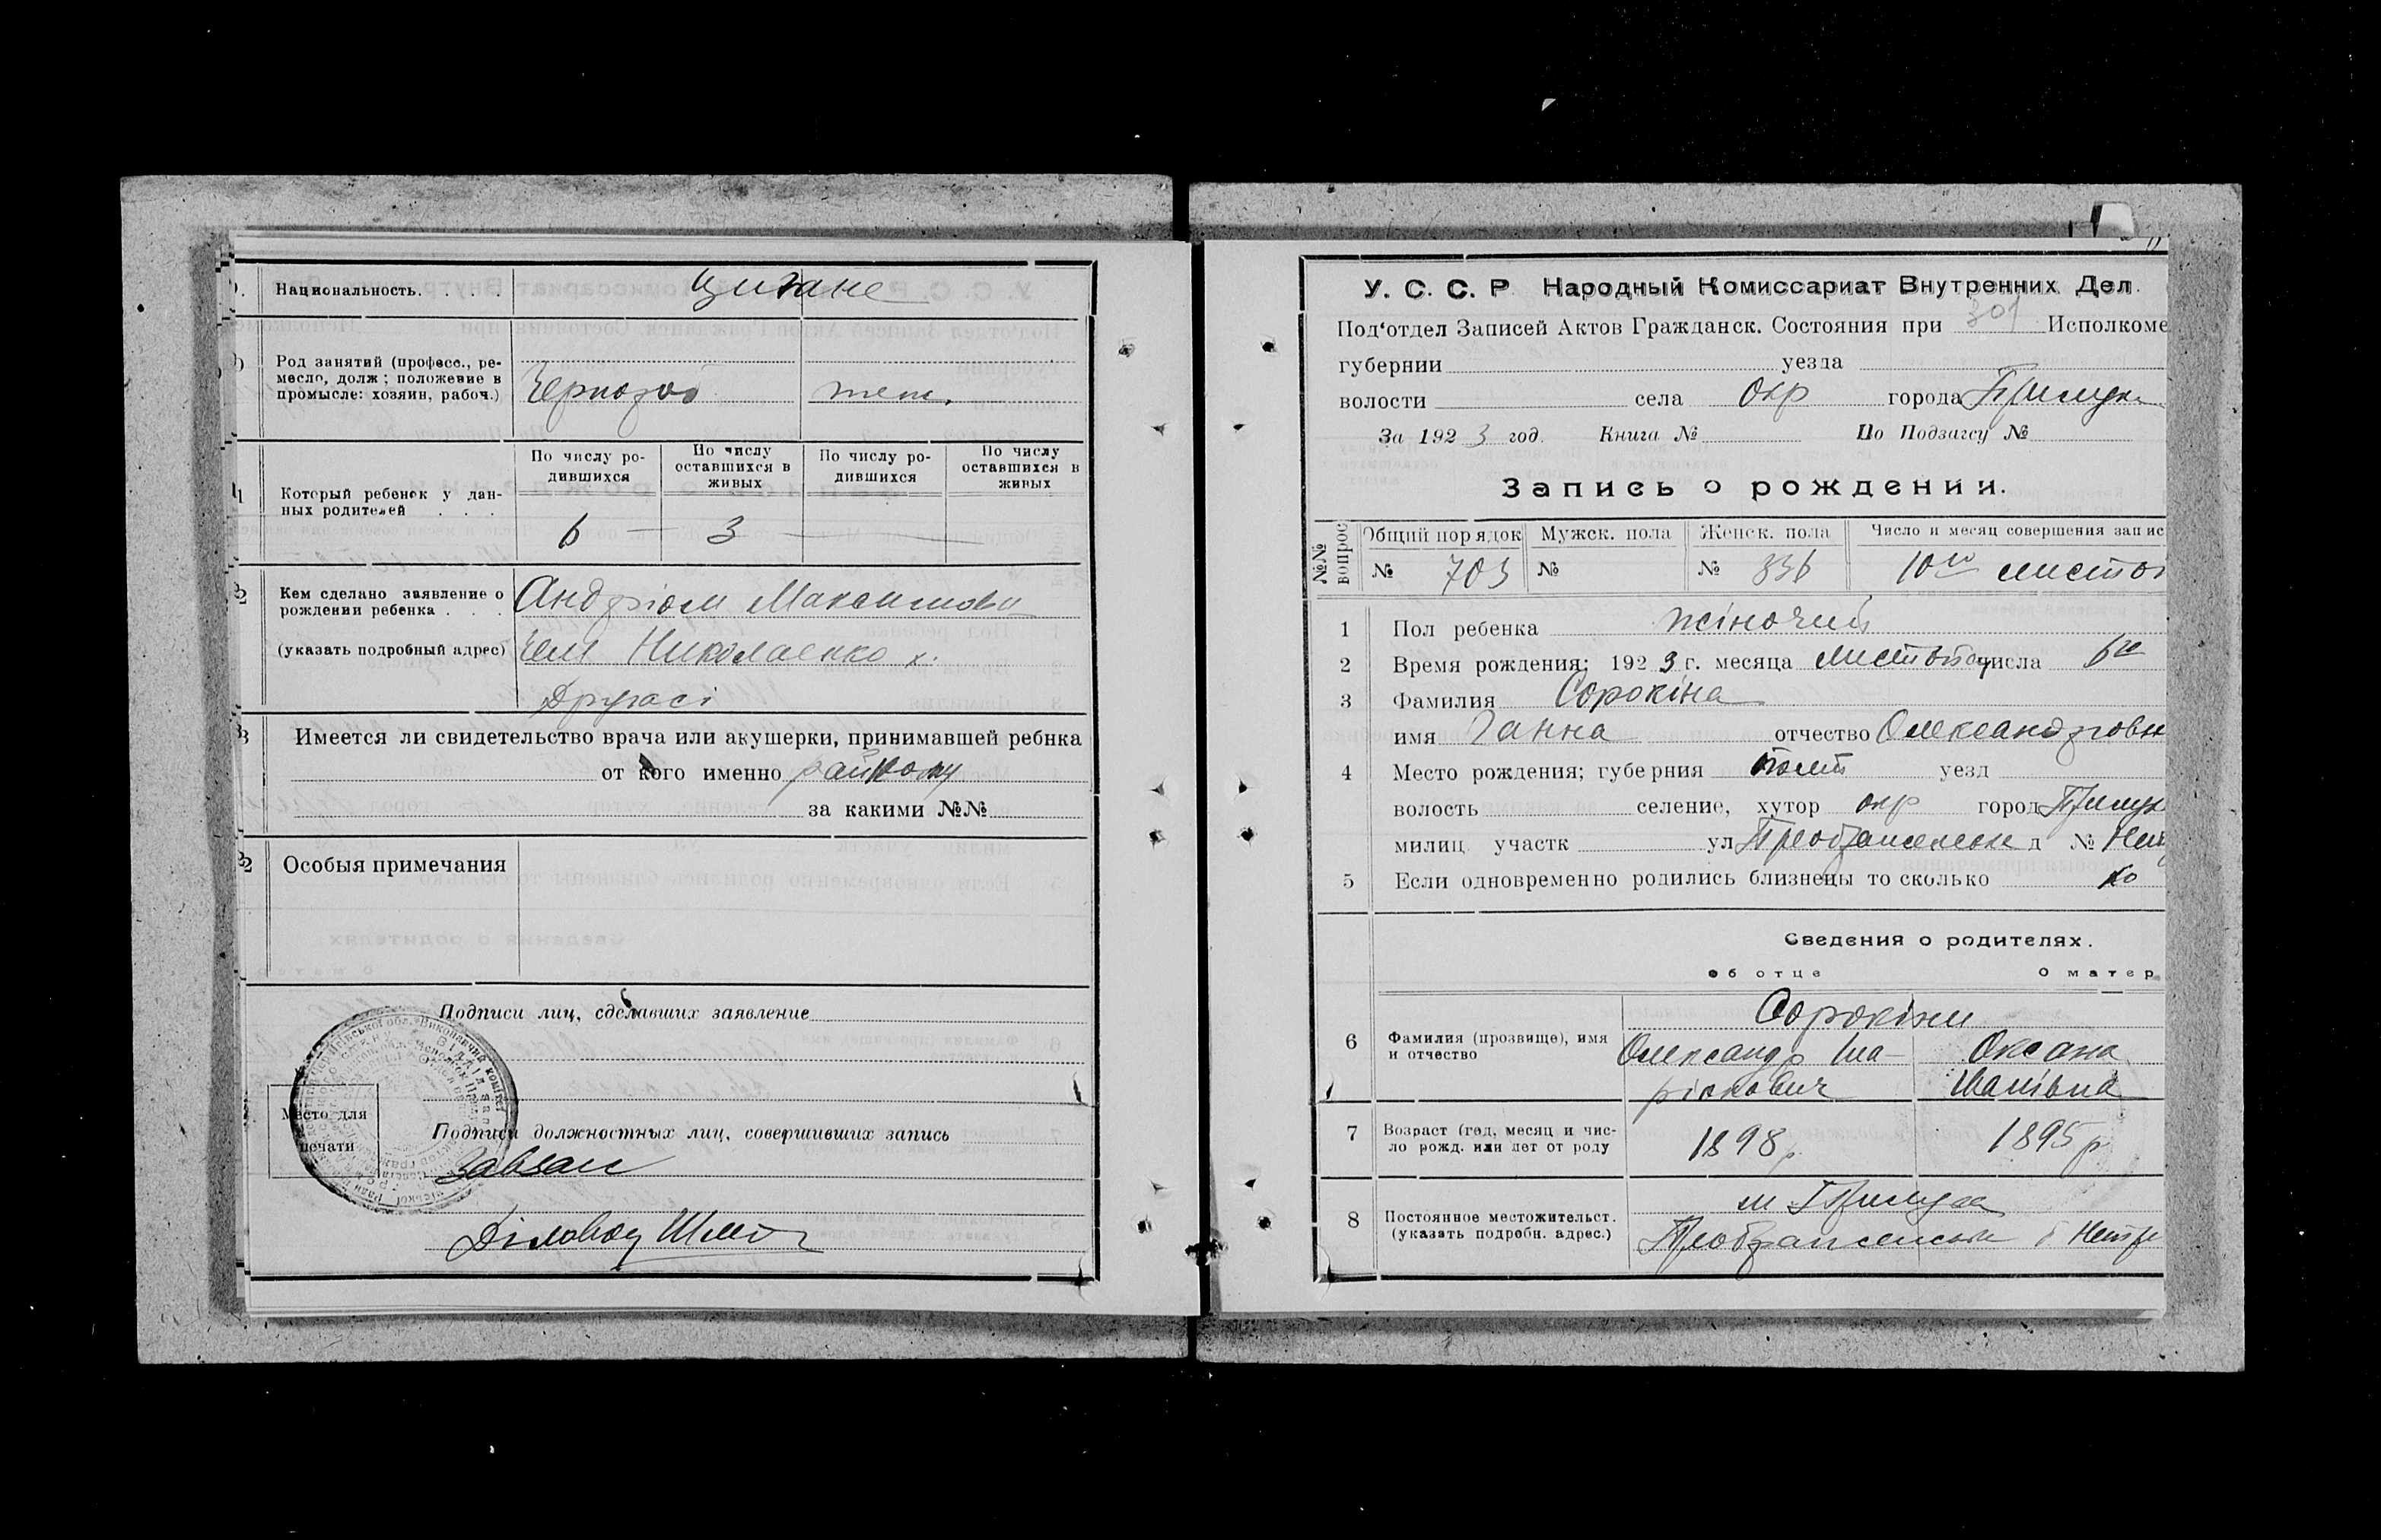 Национальность. . . . цигане
Род занятий (професс., ре-
месло, долж; положение в
промысле: хозяин, рабоч.)
По числу ро-
дившихся
По числу
оставшихся в
живых
По числу ро-
дившихся
По числу
оставшихся в
живых
Который ребенок у дан-
ных родителей . . .
6 — 3
Кем сделано заявление о
рождении ребенка . . .
Андрієм Максимови
(указать подробный адрес)
чем Николаенко х.
Другасі
Имеется ли свидетельство врача или акушерки, принимавшей ребнка
от кого именно райкому
за какими №№
2 Особыя примечания
Подписи лиц, сделавших заявление
Место для
печати
Подписи должностных лиц, совершивших запись
Завзаг
Діловод
У. С. С. Р Народный Комиссариат Внутренних Дел.
Под'отдел Записей Актов Гражданск. Состояния при 301 Исполкоме
губернии уезда
волости села окр города Прилуки
За 1923 год. Книга № По Подзагсу №
Запись о рождении.
№№ вопрос
Общий порядок Мужск. пола Женск. пола Число и месяц совершения запис
№ 703 № № 336 10го листоп
1 Пол ребенка жіночий
2 Время рождения; 1923 г. месяца листопад числа 6го
3 Фамилия Сорокіна
имя Ганна отчество Олександровн
4 Место рождения; губерния Полт уезд
волость селение, хутор окр город Прилук
милиц участк ул Преображенськ д №
5 Если одновременно родились близнецы то сколько
Сведения о родителях.
об отце о матер
6 Фамилия (прозвище), имя
и отчество
Сорокіни
Олександр Ма-
ріанович
Оксана
Іванівна
7 Возраст (год, месяц и чис-
ло рожд. или лет от роду
1898р 1895р
8 Постоянное местожительст.
(указать подробн. адрес.)
м Прилука
Преображенськ